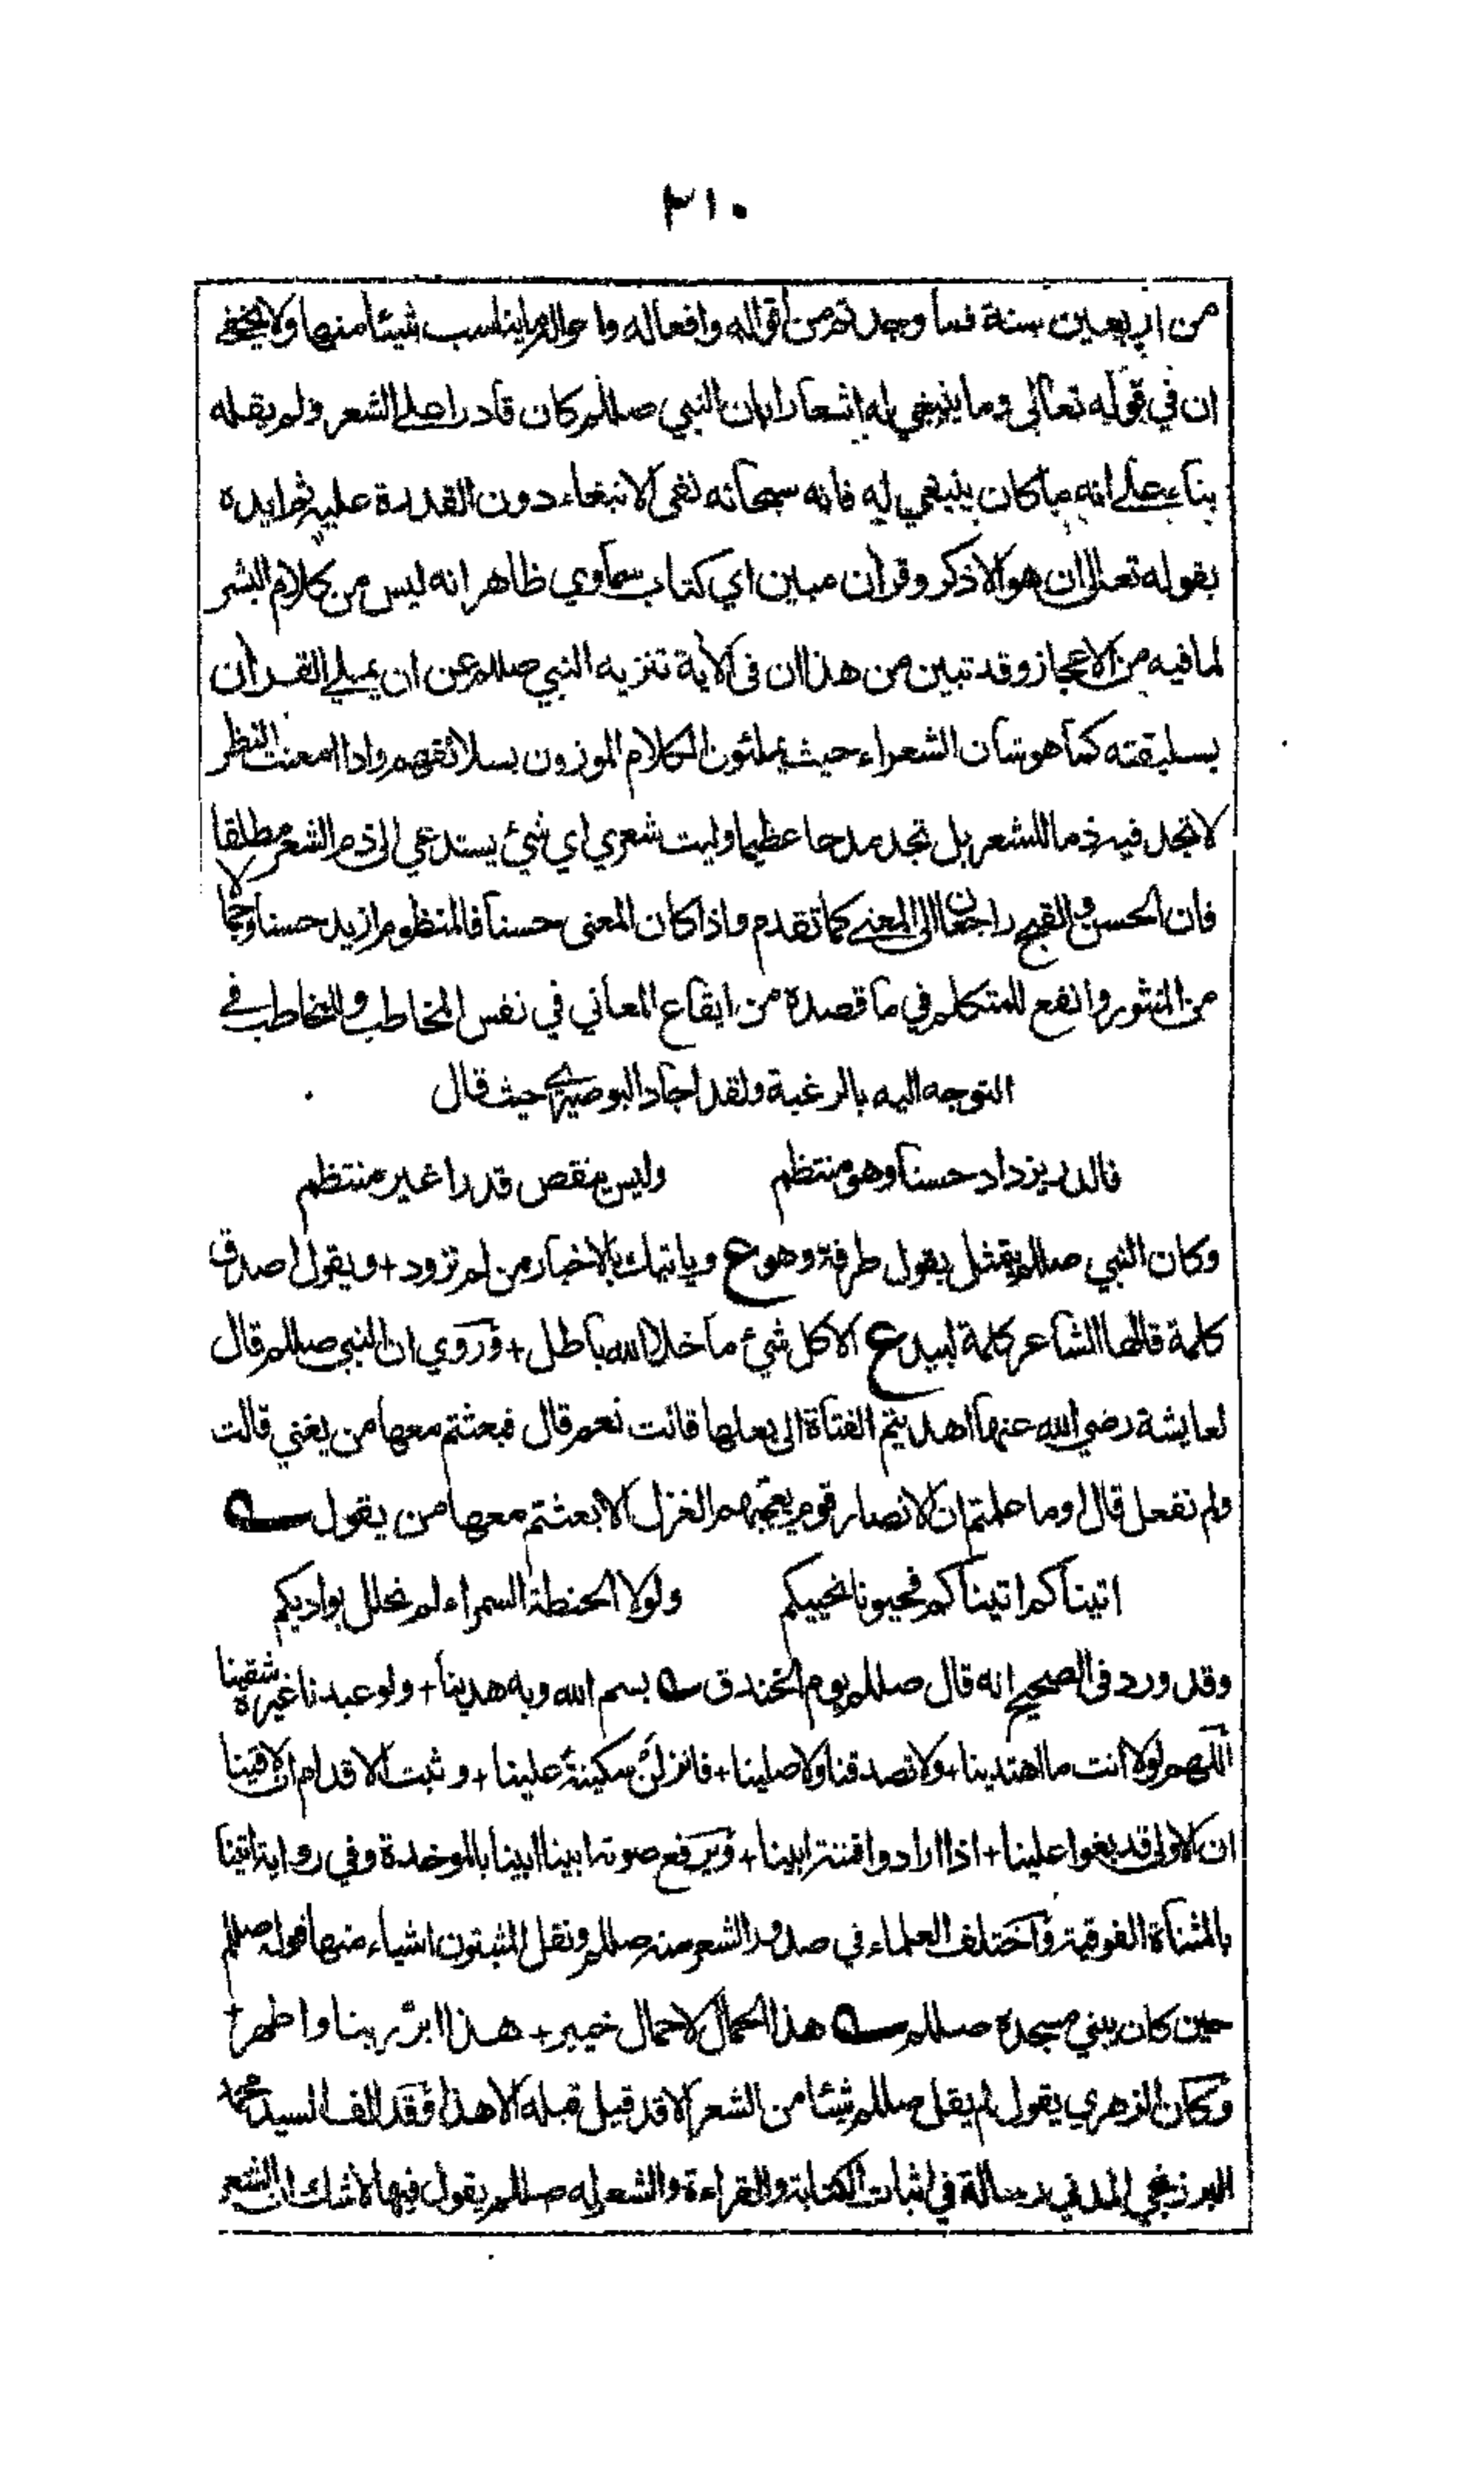 ٣١٠
من اربعين سنة فما وجدتم من اقواله وافعاله واحواله ما يناسب شيئا منها ولا يخفى
ان في قوله تعالى وما ينبغي له اشعارا بان النبي صللم كان قادرا على الشعر ولم يقله
بناء على انه ما كان ينبغي له فانه سبحانه نفى الانبغاء دون القدرة عليه ثم ايده
بقوله تعالى ان هو الا ذكر وقرآن مبين اي كتاب سماوي ظاهر انه ليس من كلام البشر
لما فيه من الاعجاز وقد تبين من هذا ان في الآية تنزيه النبي صللم عن ان يملي القرآن
بسليقته كما هو شان الشعراء حيث يملئون الكلام الموزون بسلائقهم واذا امعنت النظر
لا تجد فيه ذما للشعر بل تجد مدحا عظيما وليت شعري اي شيئ يستدعي الى ذم الشعر مطلقا
فان الحسن والقبح راجعان الى المعنى كما تقدم واذا كان المعنى حسنا فالمنظوم ازيد حسنا وجمالا
من المنثور وانفع للمتكلم في ما قصده من ايقاع المعاني في نفس المخاطب والمخاطب في
التوجه اليه بالرغبة ولقد اجاد البوصيري حيث قال
فالدر يزداد حسنا وهو منتظم وليس ينقص قدرا غير منتظم
وكان النبي صللم يتمثل بقول طرفة وهو ع وياتيك بالاخبار من لم تزود + ويقول اصدق
كلمة قالها الشاعر كلمة لبيد ع الا كل شيئ ما خلا الله باطل + وروي ان النبي صللم قال
لعايشة رضي الله عنها اهديتم الفتاة الى بعلها قالت نعم قال فبعثتم معها من يغني قالت
ولم نفعل قال اوما علمتم ان الانصار قوم يعجبهم الغزل الا بعثتم معها من يقول
اتيناكم اتيناكم فحيونا نحييكم ولولا الحنطة السمراء لم نحلل بواديكم
وقد ورد في الصحيح انه قال صللم يوم الخندق بسم الله وبه هدينا + ولو عبدنا غيره شقينا
اللهم لولا انت ما اهتدينا + ولا تصدقنا ولا صلينا + فانزلن سكينة علينا + وثبت الاقدام ان لاقينا
ان الاولى قد بغوا علينا + اذا ارادوا فتنة ابينا + ويرفع صوته ابينا ابينا بالموحدة وفي رواية اتينا
بالمثناة الفوقية واختلف العلماء في صدور الشعر منه صللم ونقل المثبتون اشياء منها قوله صللم
حين كان يبني مسجده صللم هذا الحمال لا حمال خيبر + هذا ابر ربنا واطهر +
وكان الزهري يقول لم يقل صللم شيئا من الشعر الا قد قيل قبله الا هذا فقد الف السيد محمد
البرزنجي المدني رسالة في اثبات الكتابة والقراءة والشعر له صللم يقول فيها لا شك ان الشعر